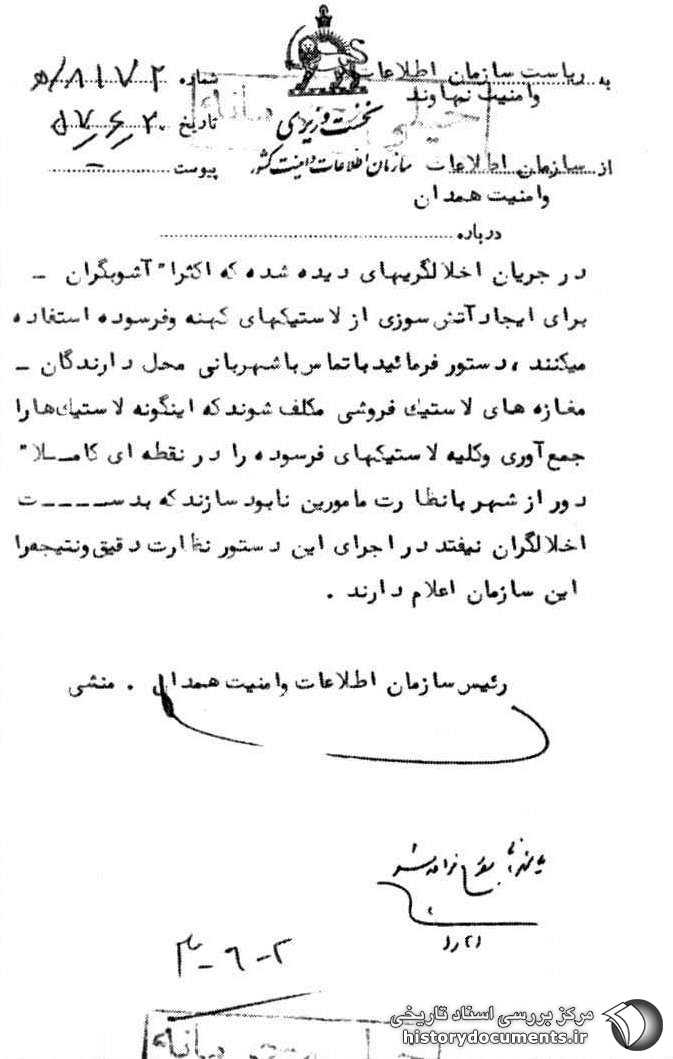 به ریاست سازمان اطلاعات
وامنیت نهاوند
شماره ۸۱۷۲/ه
خیلی محرمانه
نخست وزیری
تاریخ
سازمان اطلاعات و امنیت کشور
از سازمان اطلاعات
وامنیت همدان
پیوست –
درباره
در جریان اخلالگریهای دیده شده که اکثرا" آشوبگران –
برای ایجاد آتش سوزی از لاستیکهای کهنه وفرسوده استفاده
میکنند ، دستور فرمائید باتماس با شهربانی محل دارندگان –
مغازه های لاستیك فروشی مکلف شوند که اینگونه لاستیك‌هارا
جمع آوری وکلیه لاستیکهای فرسوده را در نقطه ای کامــلا"
دور از شهر بانظارت مامورین نابود سازند که بدســـــت
اخلالگران نیفتد در اجرای این دستور نظارت دقیق ونتیجه‌را
این سازمان اعلام دارند .
رئیس سازمان اطلاعات وامنیت همدان . منشی
خیلی محرمانه
مرکز بررسی اسناد تاریخی
historydocuments.ir